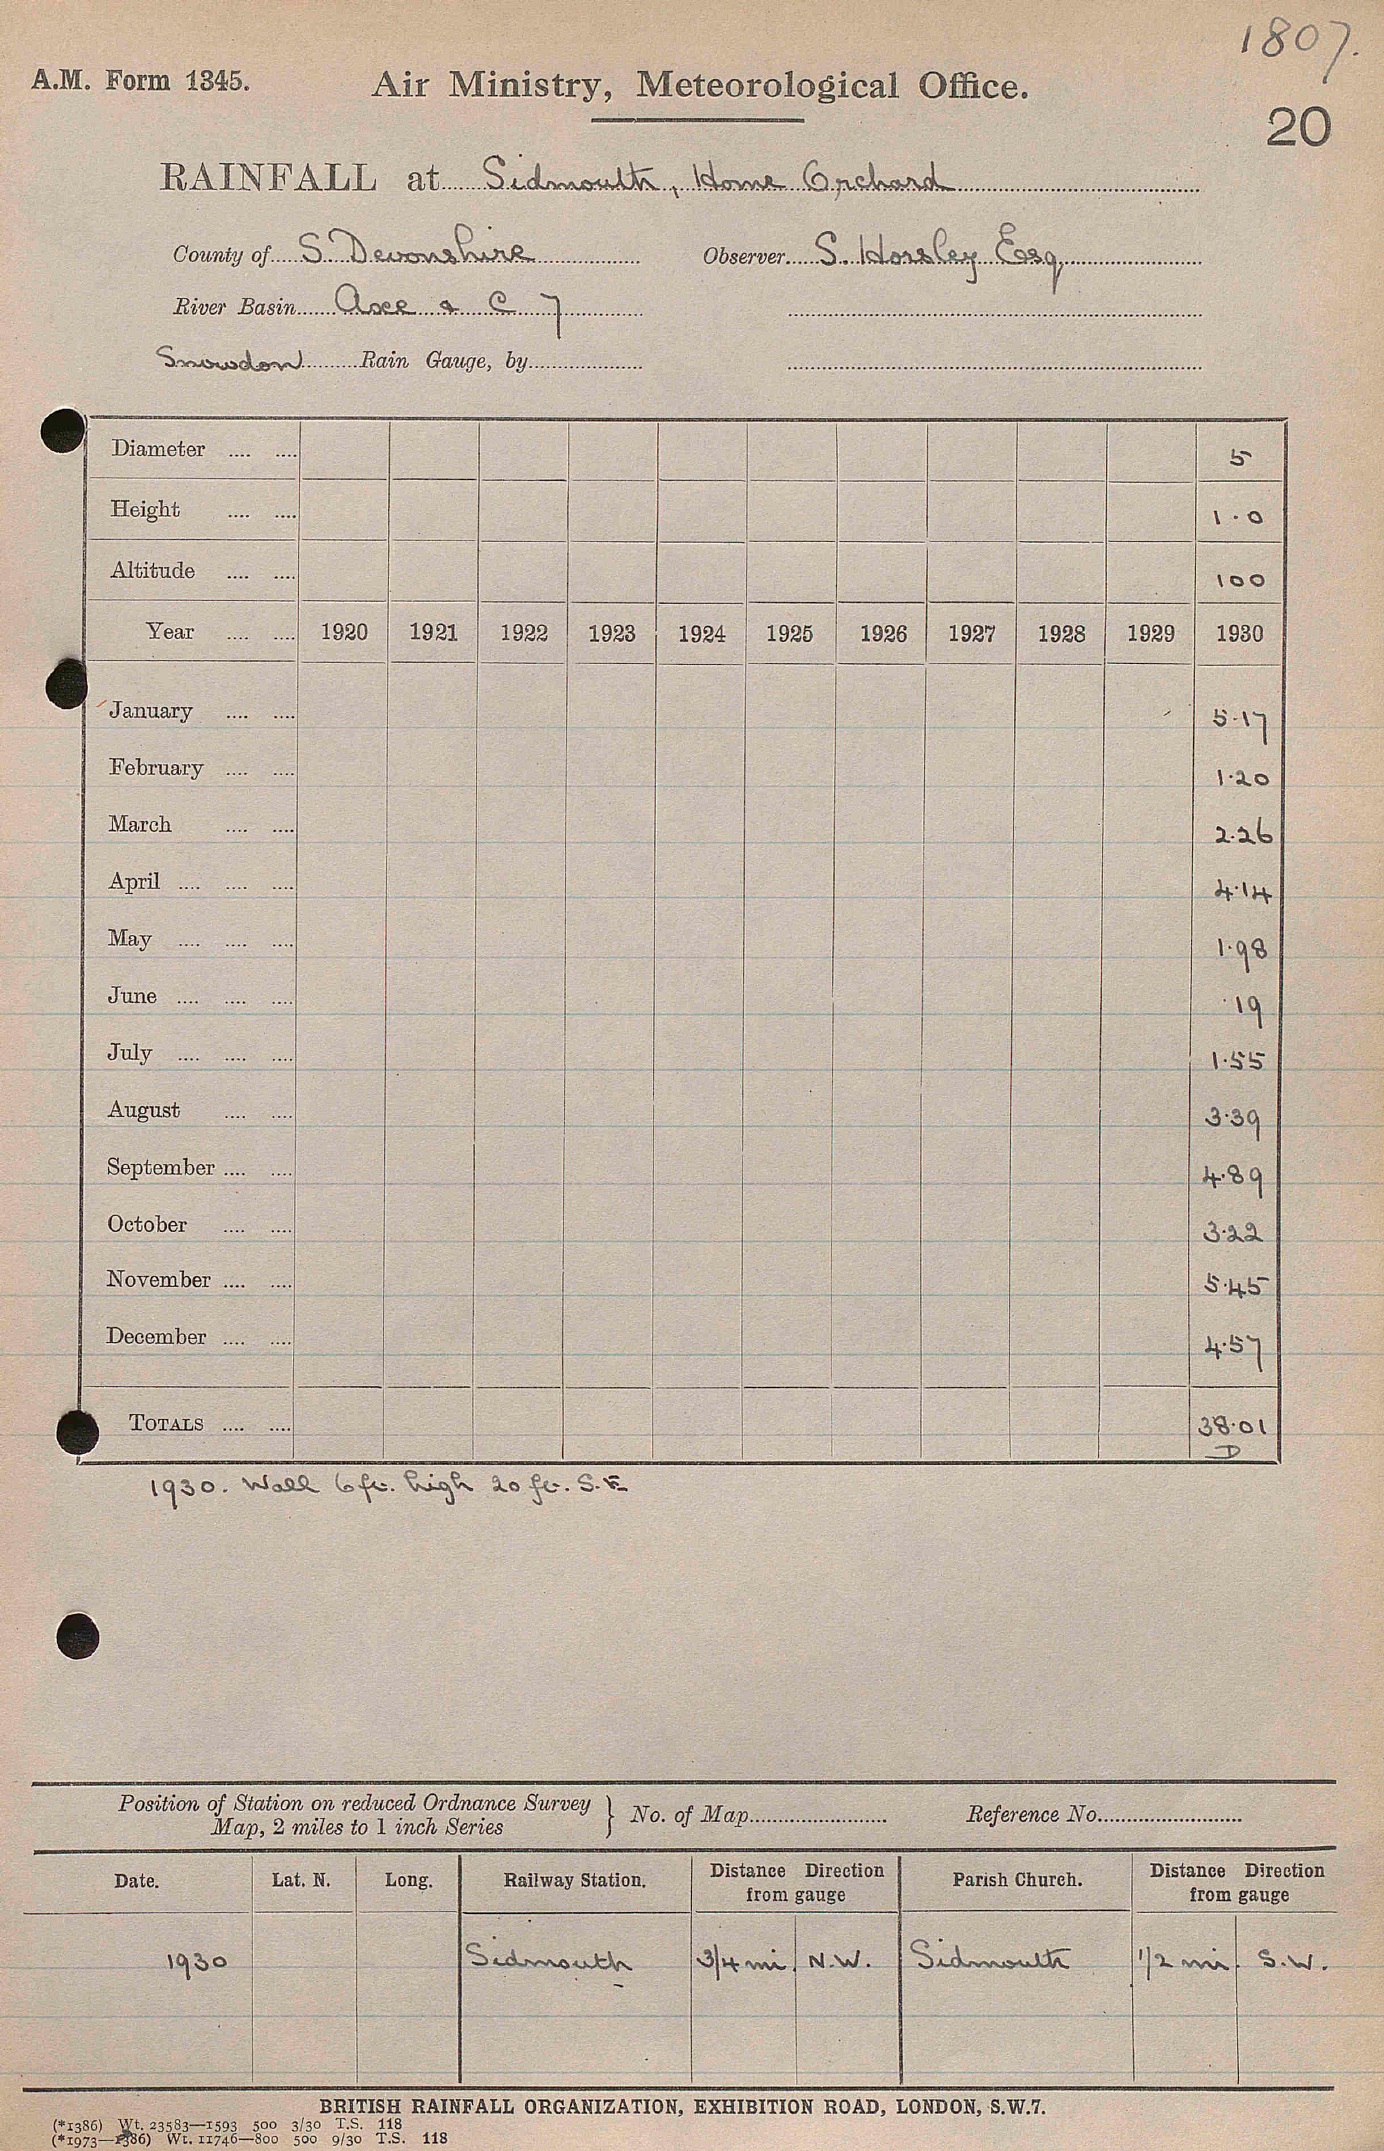 1807.
A.M. Form 1345. Air Ministry, Meteorological Office.
20
RAINFALL at Sidmouth, Home Orchard
County of S. Devonshire Observer S. Horsley Esq
River Basin Axe & C 7
Snowdon Rain Gauge, by
Diameter .... .... 5
Height .... .... 1.0
Altitude .... .... 100
Year .... .... 1920 1921 1922 1923 1924 1925 1926 1927 1928 1929 1930
January .... .... 5.17
February .... .... 1.20
March .... .... 2.26
April .... .... .... 4.14
May .... .... .... 1.98
June .... .... .... .19
July .... .... .... 1.55
August .... .... 3.39
September .... .... 4.89
October .... .... 3.22
November .... .... 5.45
December .... .... 4.57
TOTALS .... .... 38.01
D
1930. Wall 6 ft. high 20 ft. S.E.
Position of Station on reduced Ordnance Survey
Map, 2 miles to 1 inch Series } No. of Map Reference No.
Date. Lat. N. Long. Railway Station. Distance Direction from gauge Parish Church. Distance Direction from gauge
1930 Sidmouth 3/4 mi. N.W. Sidmouth 1/2 mi. S.W.
BRITISH RAINFALL ORGANIZATION, EXHIBITION ROAD, LONDON, S.W.7.
(*1386) Wt. 23583—1593 500 3/30 T.S. 118
(*1973—1386) Wt. 11746—800 500 9/30 T.S. 118